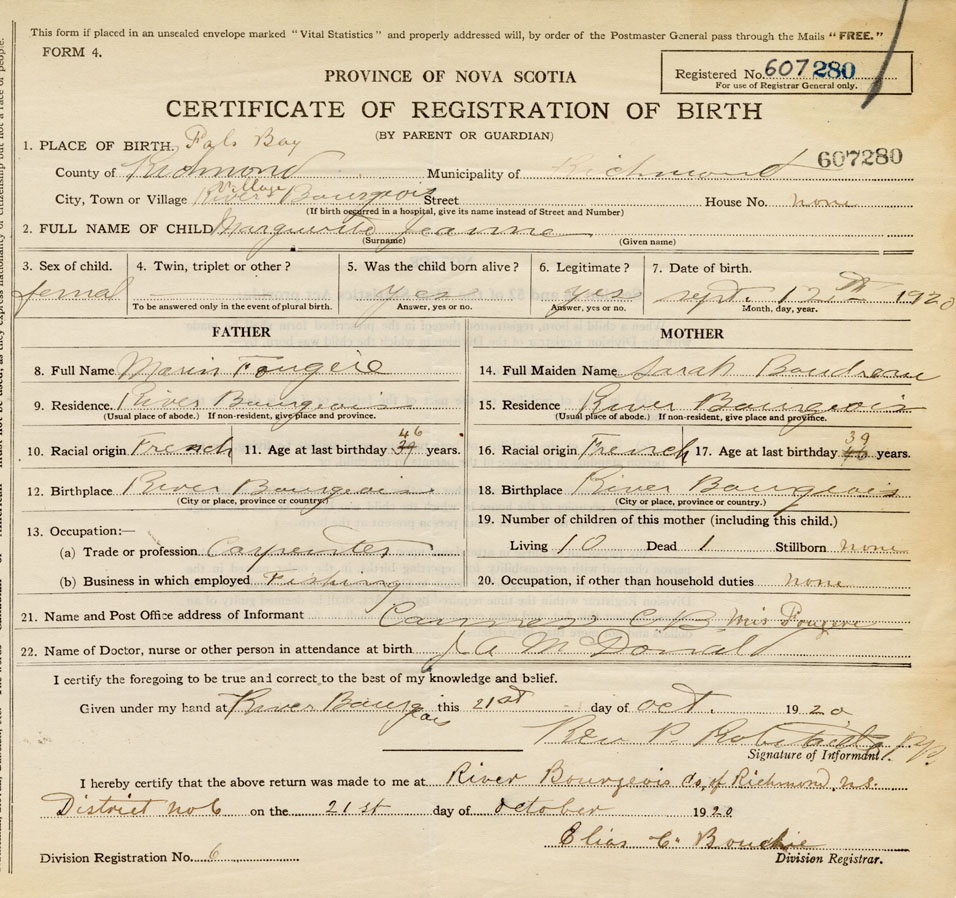 This form if placed in an unsealed envelope marked "Vital Statistics" and properly addressed will, by order of the Postmaster General pass through the Mails "FREE."
FORM 4.
Registered No. 607280
For use of Registrar General only.
PROVINCE OF NOVA SCOTIA
CERTIFICATE OF REGISTRATION OF BIRTH
(BY PARENT OR GUARDIAN)
1. PLACE OF BIRTH. Bay
607280
County of Richmond Municipality of Richmond
Village
City, Town or Village River Bourgeois Street House No. none
(If birth occurred in a hospital, give its name instead of Street and Number)
2. FULL NAME OF CHILD Marguerite Jeanne
(Surname) (Given name)
3. Sex of child. 4. Twin, triplet or other? 5. Was the child born alive? 6. Legitimate? 7. Date of birth.
femal yes yes sept. 12th 1920
To be answered only in the event of plural birth. Answer, yes or no. Answer, yes or no. Month, day, year.
FATHER MOTHER
8. Full Name Marin Fougère 14. Full Maiden Name Sarah Boudreau
9. Residence. River Bourgeois 15. Residence River Bourgeois
(Usual place of abode.) If non-resident, give place and province. (Usual place of abode.) If non-resident, give place and province.
46 39
10. Racial origin French 11. Age at last birthday years. 16. Racial origin French 17. Age at last birthday years.
12. Birthplace River Bourgeois 18. Birthplace River Bourgeois
(City or place, province or country.) (City or place, province or country.)
13. Occupation:— 19. Number of children of this mother (including this child.)
(a) Trade or profession Carpenter Living 10 Dead 1 Stillborn none
(b) Business in which employed Fishing 20. Occupation, if other than household duties none
21. Name and Post Office address of Informant C B Mrs Fougere
22. Name of Doctor, nurse or other person in attendance at birth. J A McDonald
I certify the foregoing to be true and correct to the best of my knowledge and belief.
Given under my hand at River Bourgeois this 21st day of oct. 1920
Rev P. P.P.
Signature of Informant.
I hereby certify that the above return was made to me at River Bourgeois Co, of Richmond, n.s.
District no 6 on the 21st day of october 1920
Elias C. Bouchie
Division Registration No. 6 Division Registrar.